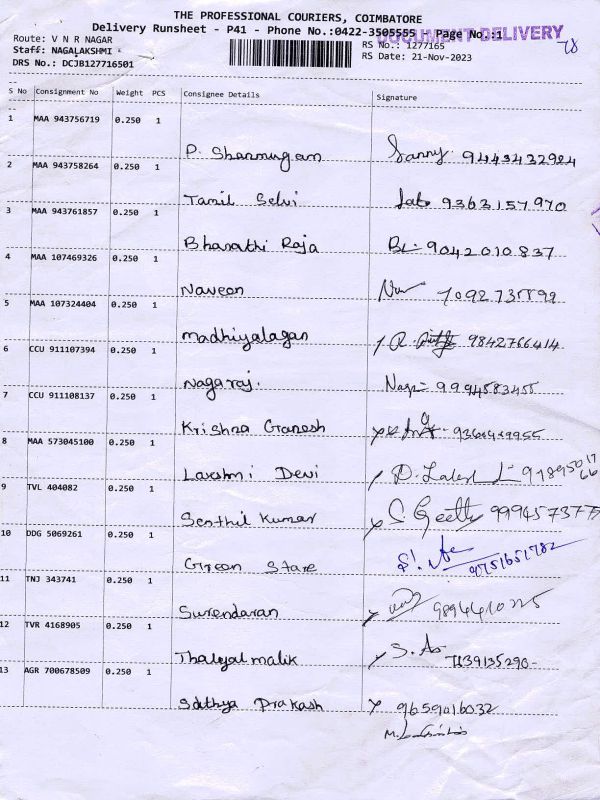 THE PROFESSIONAL COURIERS, COIMBATORE
Delivery Runsheet - P41 - Phone No.:0422-3505555 Page No.:1
DOCUMENT DELIVERY
Route: V N R NAGAR
Staff: NAGALAKSHMI
DRS No.: DCJB127716501
RS No.: 1277165
RS Date: 21-Nov-2023
78
S No Consignment No Weight PCS Consignee Details Signature
1 MAA 943756719 0.250 1
P. Shanmugam 9443432924
2 MAA 943758264 0.250 1
Tamil Selvi 9363157970
3 MAA 943761857 0.250 1
Bharathi Raja 9042010837
4 MAA 107469326 0.250 1
Naveen 7092735899
5 MAA 107324404 0.250 1
Madhiyalagan 9842766414
6 CCU 911107394 0.250 1
Nagaraj. 9994583455
7 CCU 911108137 0.250 1
Krishna Ganesh
8 MAA 573045100 0.250 1
Lakshmi Devi
9 TVL 404082 0.250 1
Senthil Kumar S. Geetha 9994573775
10 DDG 5069261 0.250 1
Green Stare 9751651782
11 TNJ 343741 0.250 1
Surendaran 9894410225
12 TVR 4168905 0.250 1
S. As
13 AGR 700678509 0.250 1
Sathya Prakash 9659016032